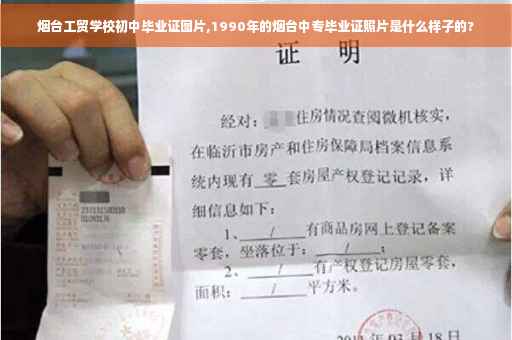 烟台工贸学校初中毕业证图片,1990年的烟台中专毕业证照片是什么样子的?
证 明
经对: 住房情况查阅微机核实,
在临沂市房产和住房保障局档案信息系
统内现有 零 套房屋产权登记记录,详
细信息如下:
1、 / 有商品房网上登记备案
零套,坐落位于: / ;
2、 / 有产权登记房屋零套,
面积: / 平方米。
03月18日